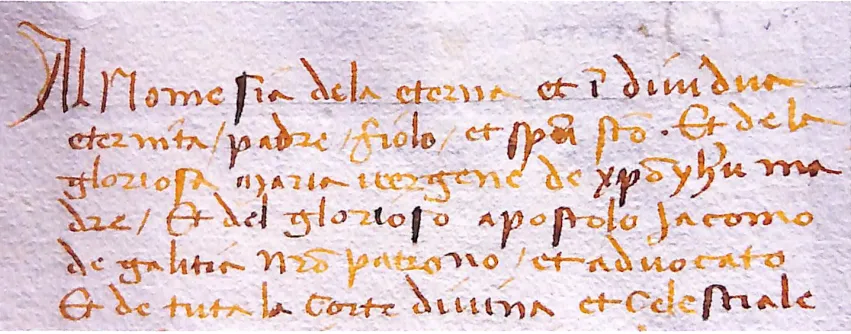 Al Nome sia dela eterna et īdividua
eternita / padre / fiolo / et spū stō. Et dela
gloriosa maria vergene de xpō yhū ma
dre / Et del glorioso apostolo Jacomo
de galitia nrō patrono / et advocato
Et de tuta la Corte divina et Celestiale